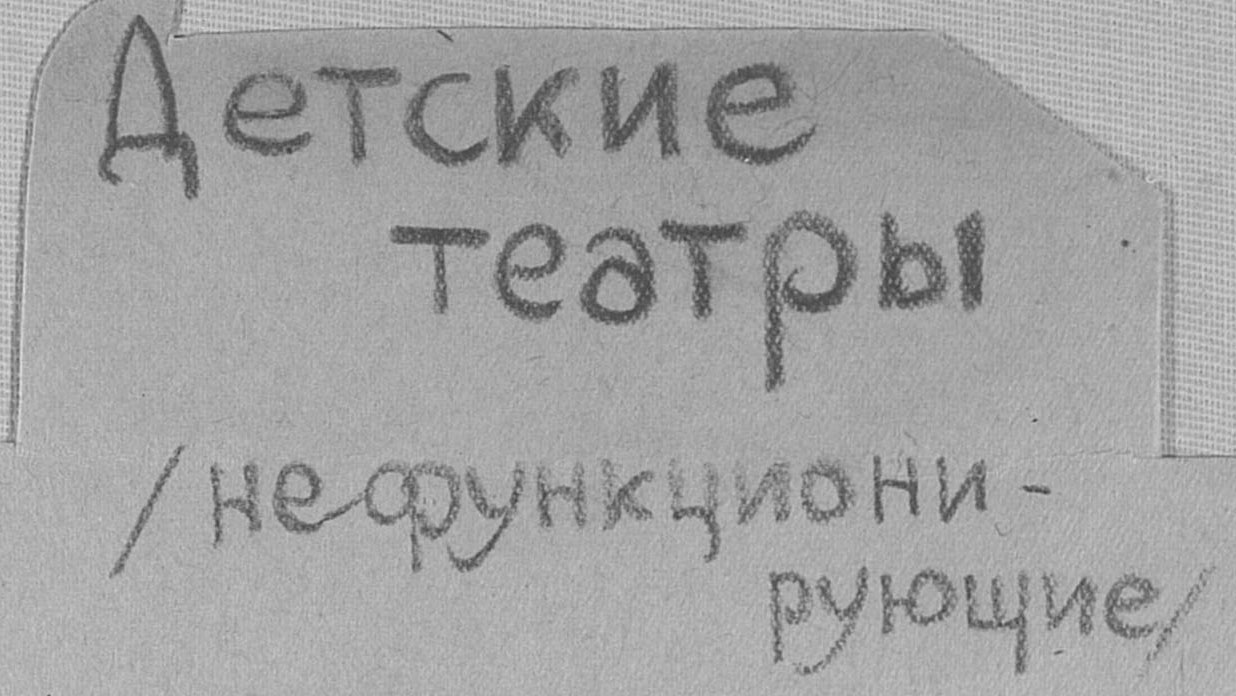 Детские
театры
/нефункциони-
рующие/